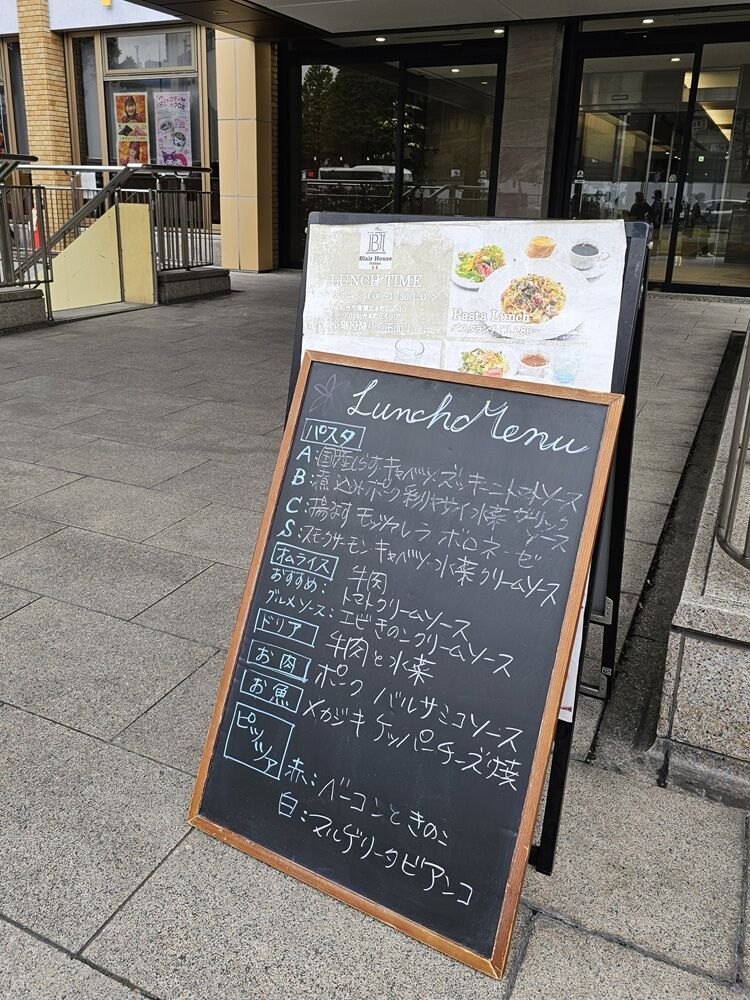 BH
Blair House
LUNCH TIME
Pasta Lunch
パスタランチ ¥1,280～
Lunch Menu
パスタ
A:国産しらす キャベツ ズッキーニ トマトソース
B:煮込みポーク 彩りヤサイ 水菜 ガーリックソース
C:揚なす モッツァレラ ボロネーゼ
S:スモークサーモン キャベツ 水菜 クリームソース
オムライス
おすすめ: 牛肉 トマトクリームソース
グルメソース:エビきのこクリームソース
ドリア 牛肉と水菜
お肉 ポーク バルサミコソース
お魚 メカジキ ケッパーチーズ焼
ピッツァ
赤:ベーコンときのこ
白:マルゲリータビアンコ